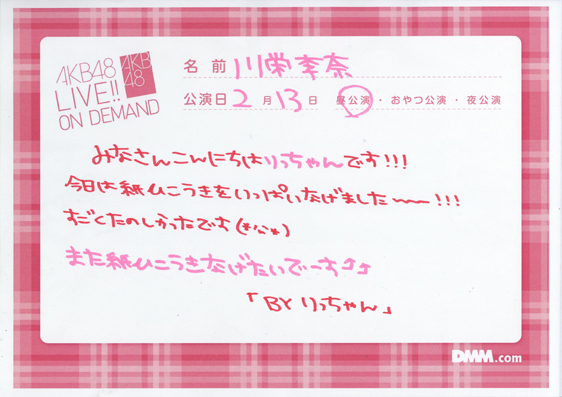 AKB48
LIVE!!
ON DEMAND
AKB
48
名前 川栄李奈
公演日 2月13日 昼公演・おやつ公演・夜公演
みなさんこんにちはりっちゃんです!!!
今日は紙ひこうきをいっぱいなげました〜!!!
すごくたのしかったです(*^^*)
また紙ひこうきなげたいでーす♪♪
「BYりっちゃん」
DMM.com